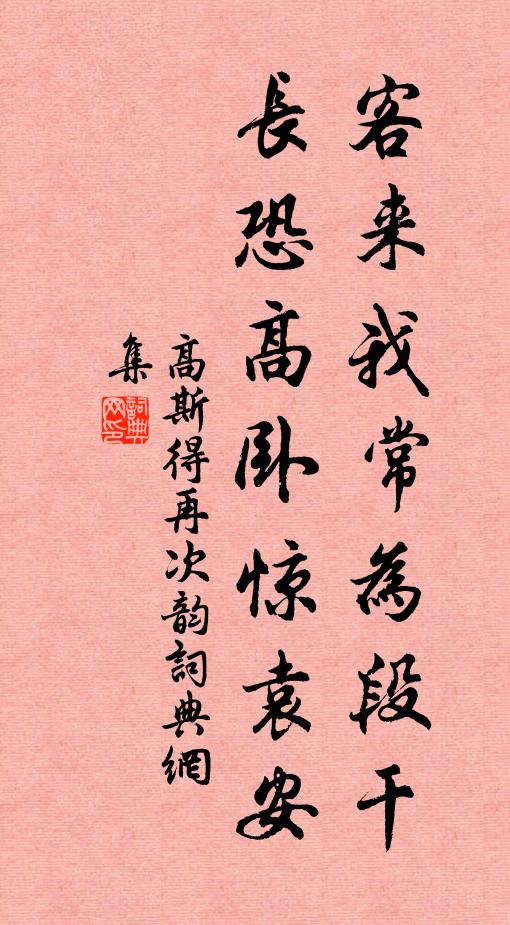 客来我常為段干
長恐高卧惊袁安
高斯得再次韵詞典網
集
詞典
网印